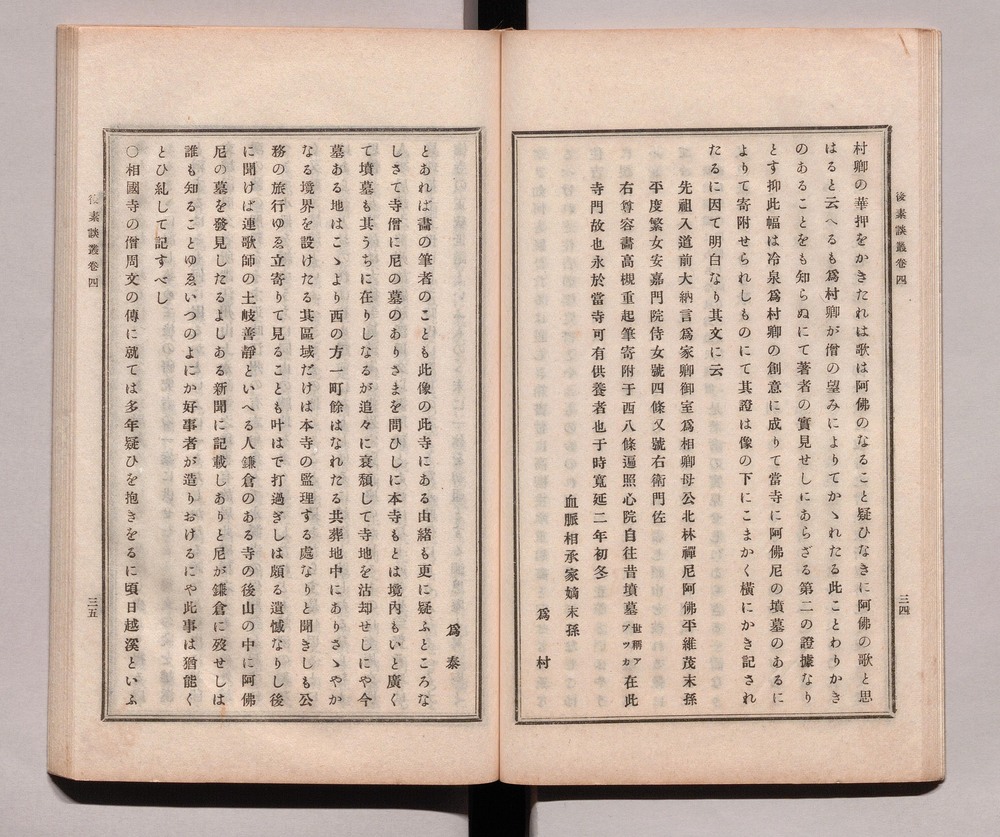 後素談叢卷四
三四
村卿の華押をかきたれは歌は阿佛のなること疑ひなきに阿佛の歌と思
はると云へるも爲村卿が僧の望みによりてかゝれたる此ことわりかき
のあることをも知らぬにて著者の實見せしにあらざる第二の證據なり
とす抑此幅は冷泉爲村卿の創意に成りて當寺に阿佛尼の墳墓のあるに
よりて寄附せられしものにて其證は像の下にこまかく橫にかき記され
たるに因て明白なり其文に云
先祖入道前大納言爲家卿御室爲相卿母公北林禪尼阿佛平維茂末孫
平度繁女安嘉門院侍女號四條又號右衛門佐
右尊容畵高槻重起筆寄附于西八條遍照心院自往昔墳墓世稱アブツカ在此
寺門故也永於當寺可有供養者也于時寬延二年初冬
血脈相承家嫡末孫
爲村
爲泰
とあれば畵の筆者のことも此像の此寺にある由緒も更に疑ふところな
しさて寺僧に尼の墓のありさまを問ひしに本寺もとは境內もいと廣く
て墳墓も其うちに在りしなるが追々に衰頽して寺地を沽却せしにや今
墓ある地はこゝより西の方一町餘はなれたる共葬地中にありさゝやか
なる境界を設けたる其區域だけは本寺の監理する處なりと聞きしも公
務の旅行ゆゑ立寄りて見ることも叶はで打過ぎしは頗る遺憾なりし後
に聞けば連歌師の土岐善靜といへる人鎌倉のある寺の後山の中に阿佛
尼の墓を發見したるよしある新聞に記載しありと尼が鎌倉に歿せしは
誰も知ることゆゑいつのよにか好事者が造りおけるにや此事は猶能く
とひ糺して記すべし
○相國寺の僧周文の傳に就ては多年疑ひを抱きをるに頃日越溪といふ
後素談叢卷四
三五